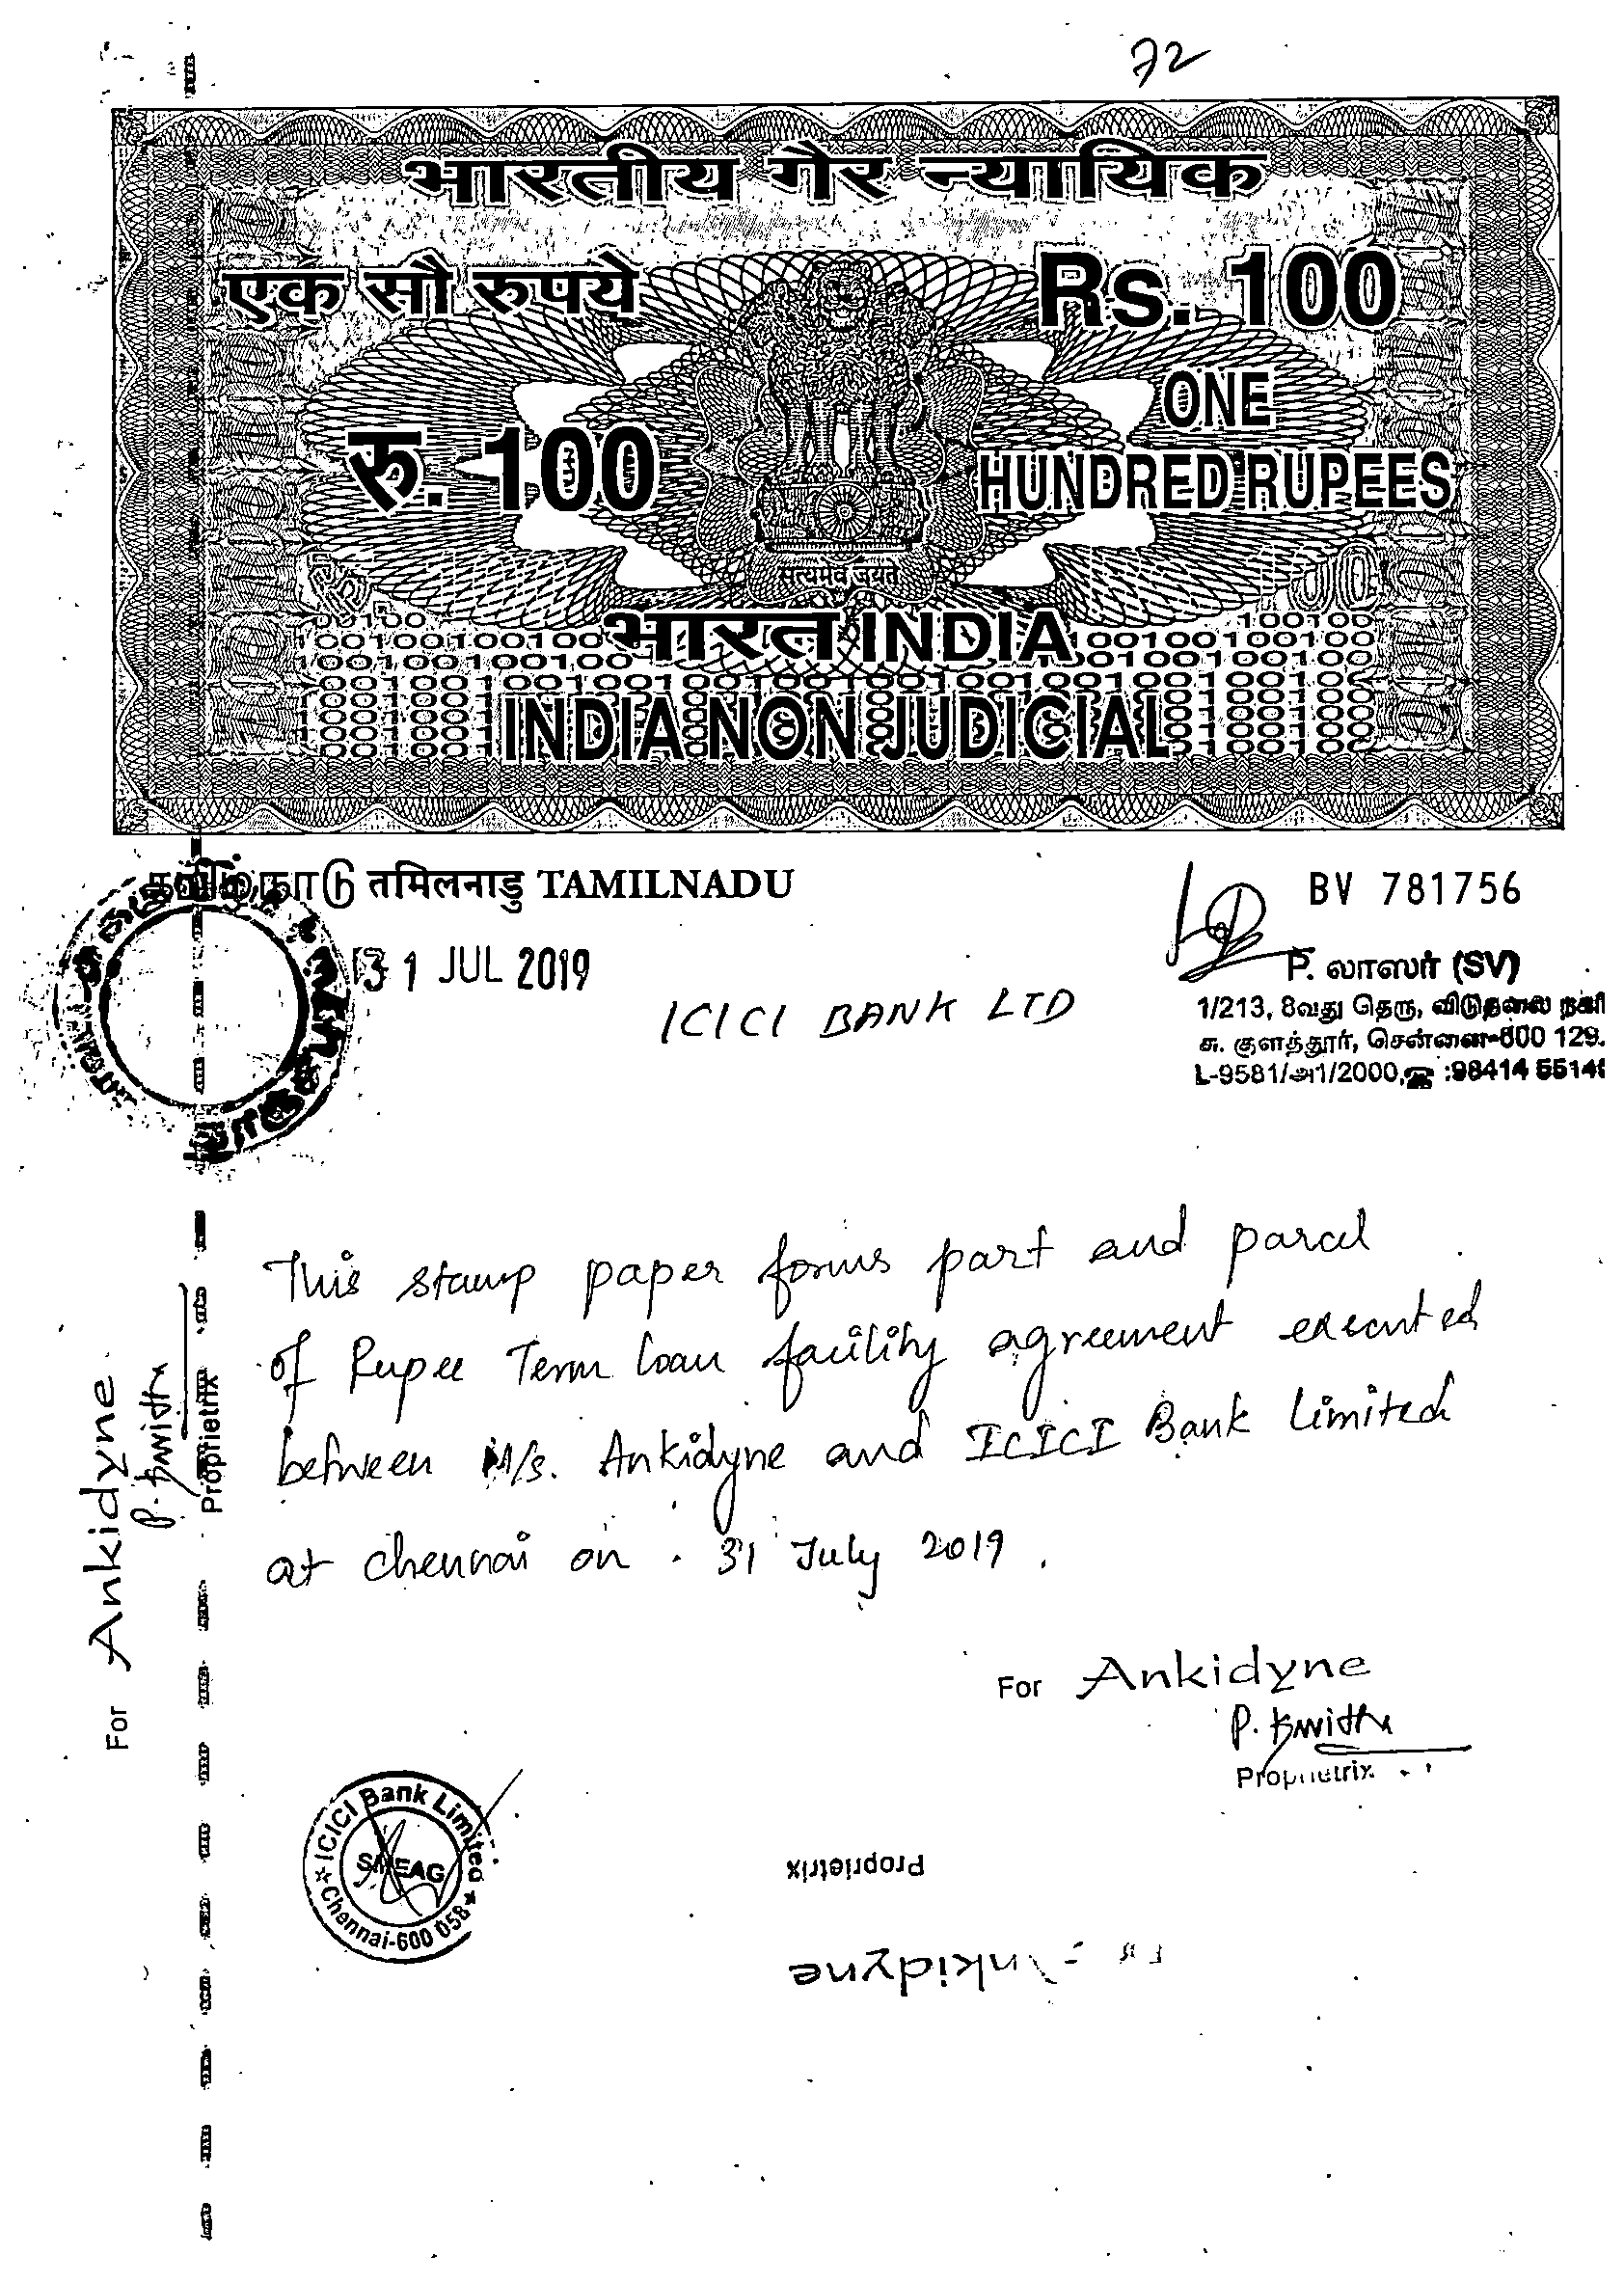 72
भारतीय गैर न्यायिक
एक सौ रुपये
Rs. 100
रु. 100
ONE
HUNDRED RUPEES
सत्यमेव जयते
भारत INDIA
INDIA NON JUDICIAL
தமிழ்நாடு तमिलनाडु TAMILNADU
BV 781756
31 JUL 2019
ICICI BANK LTD
P. லாஸர் (SV)
1/213, 8வது தெரு, விடுதலை நகர்
சு. குளத்தூர், சென்னை-600 129.
L-9581/அ1/2000, ☎ :98414 5514
This stamp paper forms part and parcel
of Rupee Term loan facility agreement executed
between M/s. Ankidyne and ICICI Bank Limited
at Chennai on . 31 July 2019.
For Ankidyne
P. Kavitha
Proprietrix
For Ankidyne
P. Kavitha
Proprietrix
ICICI Bank Limited
SMEAG
Chennai-600 058
Proprietrix
Ankidyne